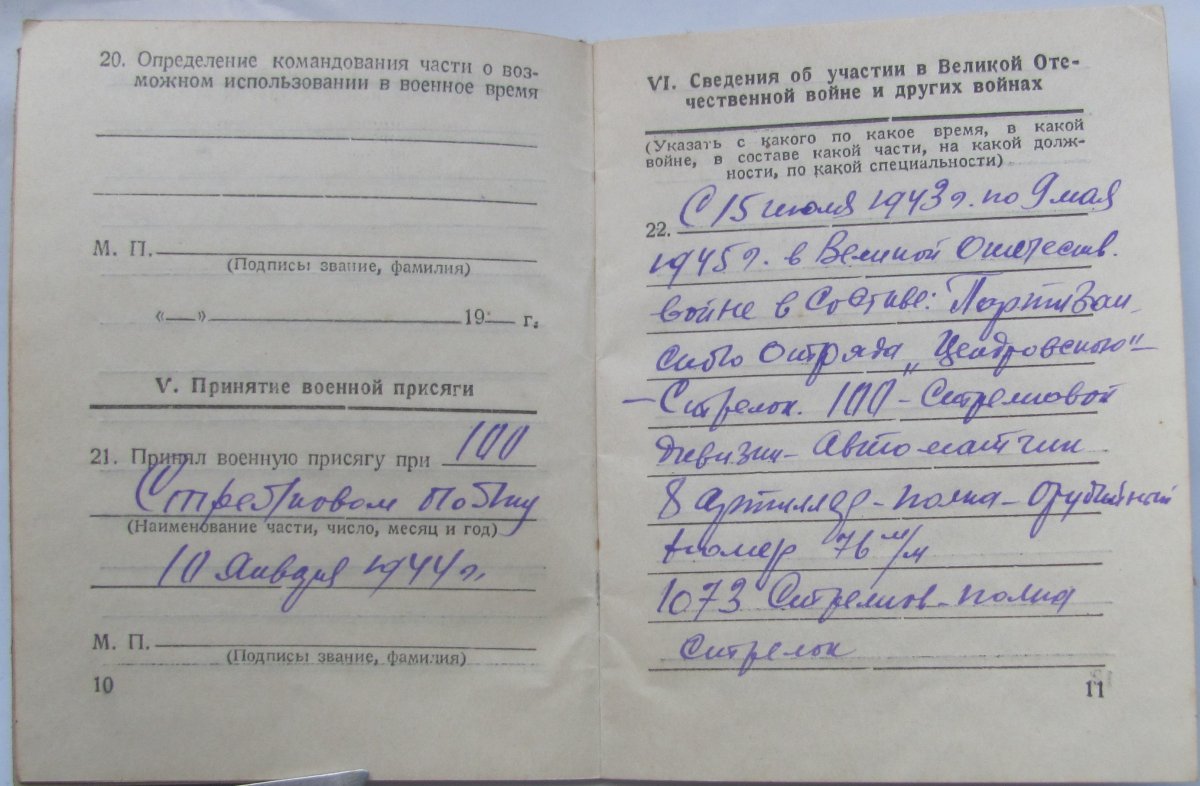 20. Определение командования части о воз-
можном использовании в военное время
М. П.
(Подписы звание, фамилия)
«—» 19 — г.
V. Принятие военной присяги
21. Принял военную присягу при 100
Стрелковом полку
(Наименование части, число, месяц и год)
10 Января 1944 г.
М. П.
(Подписы звание, фамилия)
10
VI. Сведения об участии в Великой Оте-
чественной войне и других войнах
(Указать с какого по какое время, в какой
войне, в составе какой части, на какой долж-
ности, по какой специальности)
22. С 15 июля 1943 г. по 9 мая
1945 г. в Великой Отечеств.
войне в составе: Партизан
ского отряда „Цендровского"-
- Стрелок. 100 - Стрелковой
дивизии - Автоматчик
8 артиллер - полка - Орудийный
номер 76 м/м
1073 Стрелков - полка
Стрелок
11